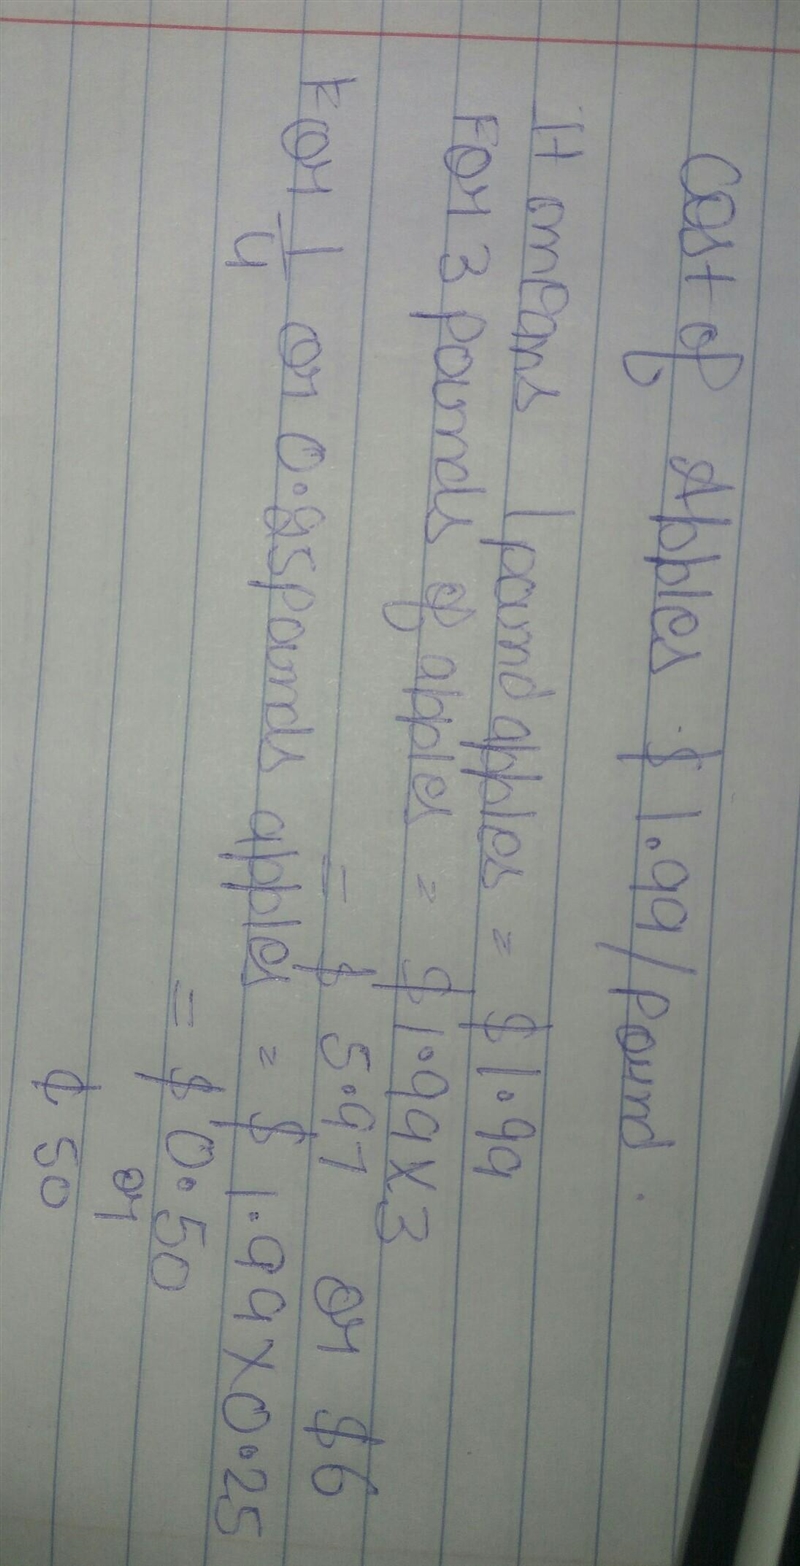 Cost of Apples $ 1.99/Pound.
It omeans 1 pound apples = $ 1.99
For 3 pounds of apples = $ 1.99 x 3
= $ 5.97 or $6
For 1/4 or 0.25 pounds apples = $ 1.99 x 0.25
= $ 0.50
or
¢ 50